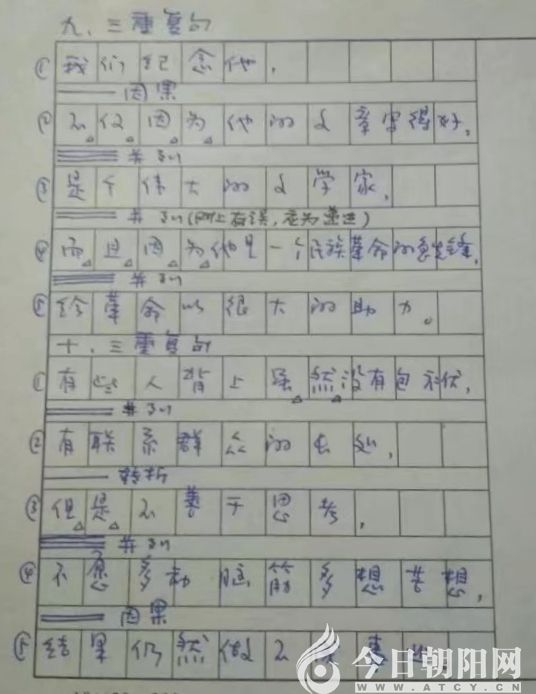 九、三重复句
① 我们纪念他,
因果
② 不仅因为他的文章写得好,
并列
③ 是个伟大的文学家,
并列(网上有误,应为递进)
④ 而且因为他是一个民族革命的急先锋,
并列
⑤ 给革命以很大的助力。
十、三重复句
① 有些人背上虽然没有包袱,
并列
② 有联系群众的长处,
转折
③ 但是不善于思考,
并列
④ 不愿多动脑筋多想苦想,
因果
⑤ 结果仍然做不成事业
今日朝阳网
WWW.ATCY.CN